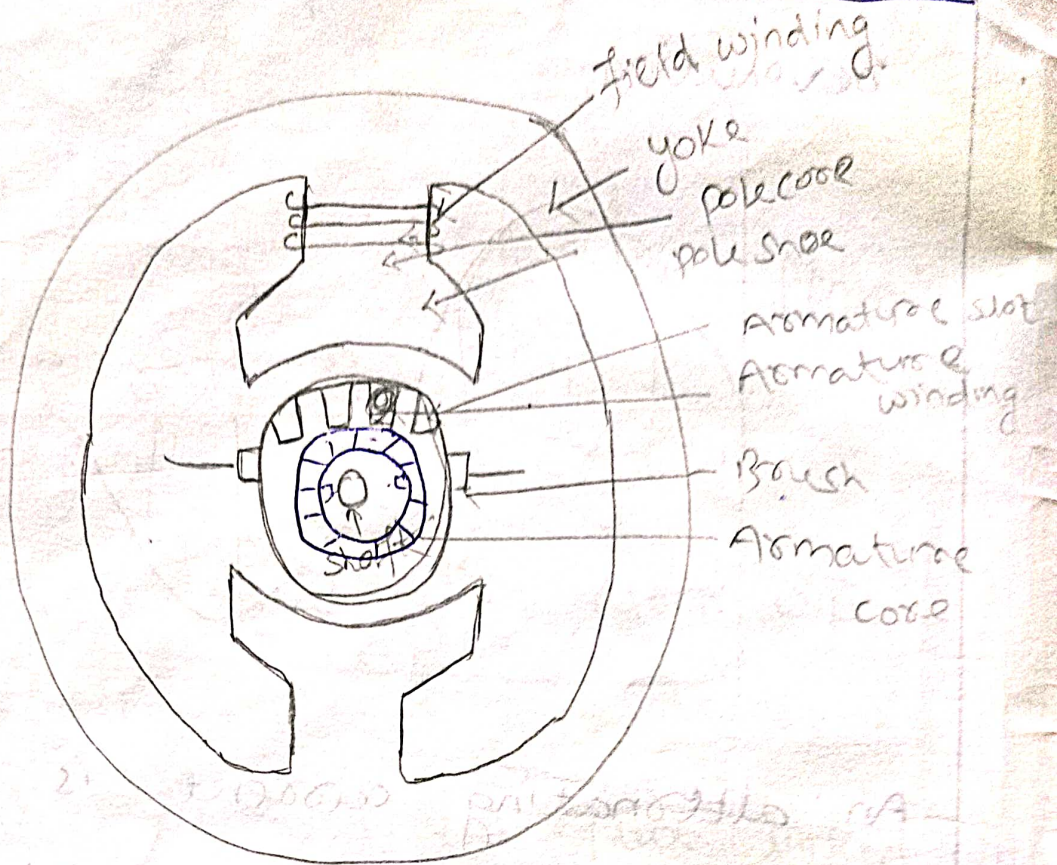 Field winding
yoke
pole core
pole shoe
Armature slot
Armature
winding
Brush
Armature
core
shaft